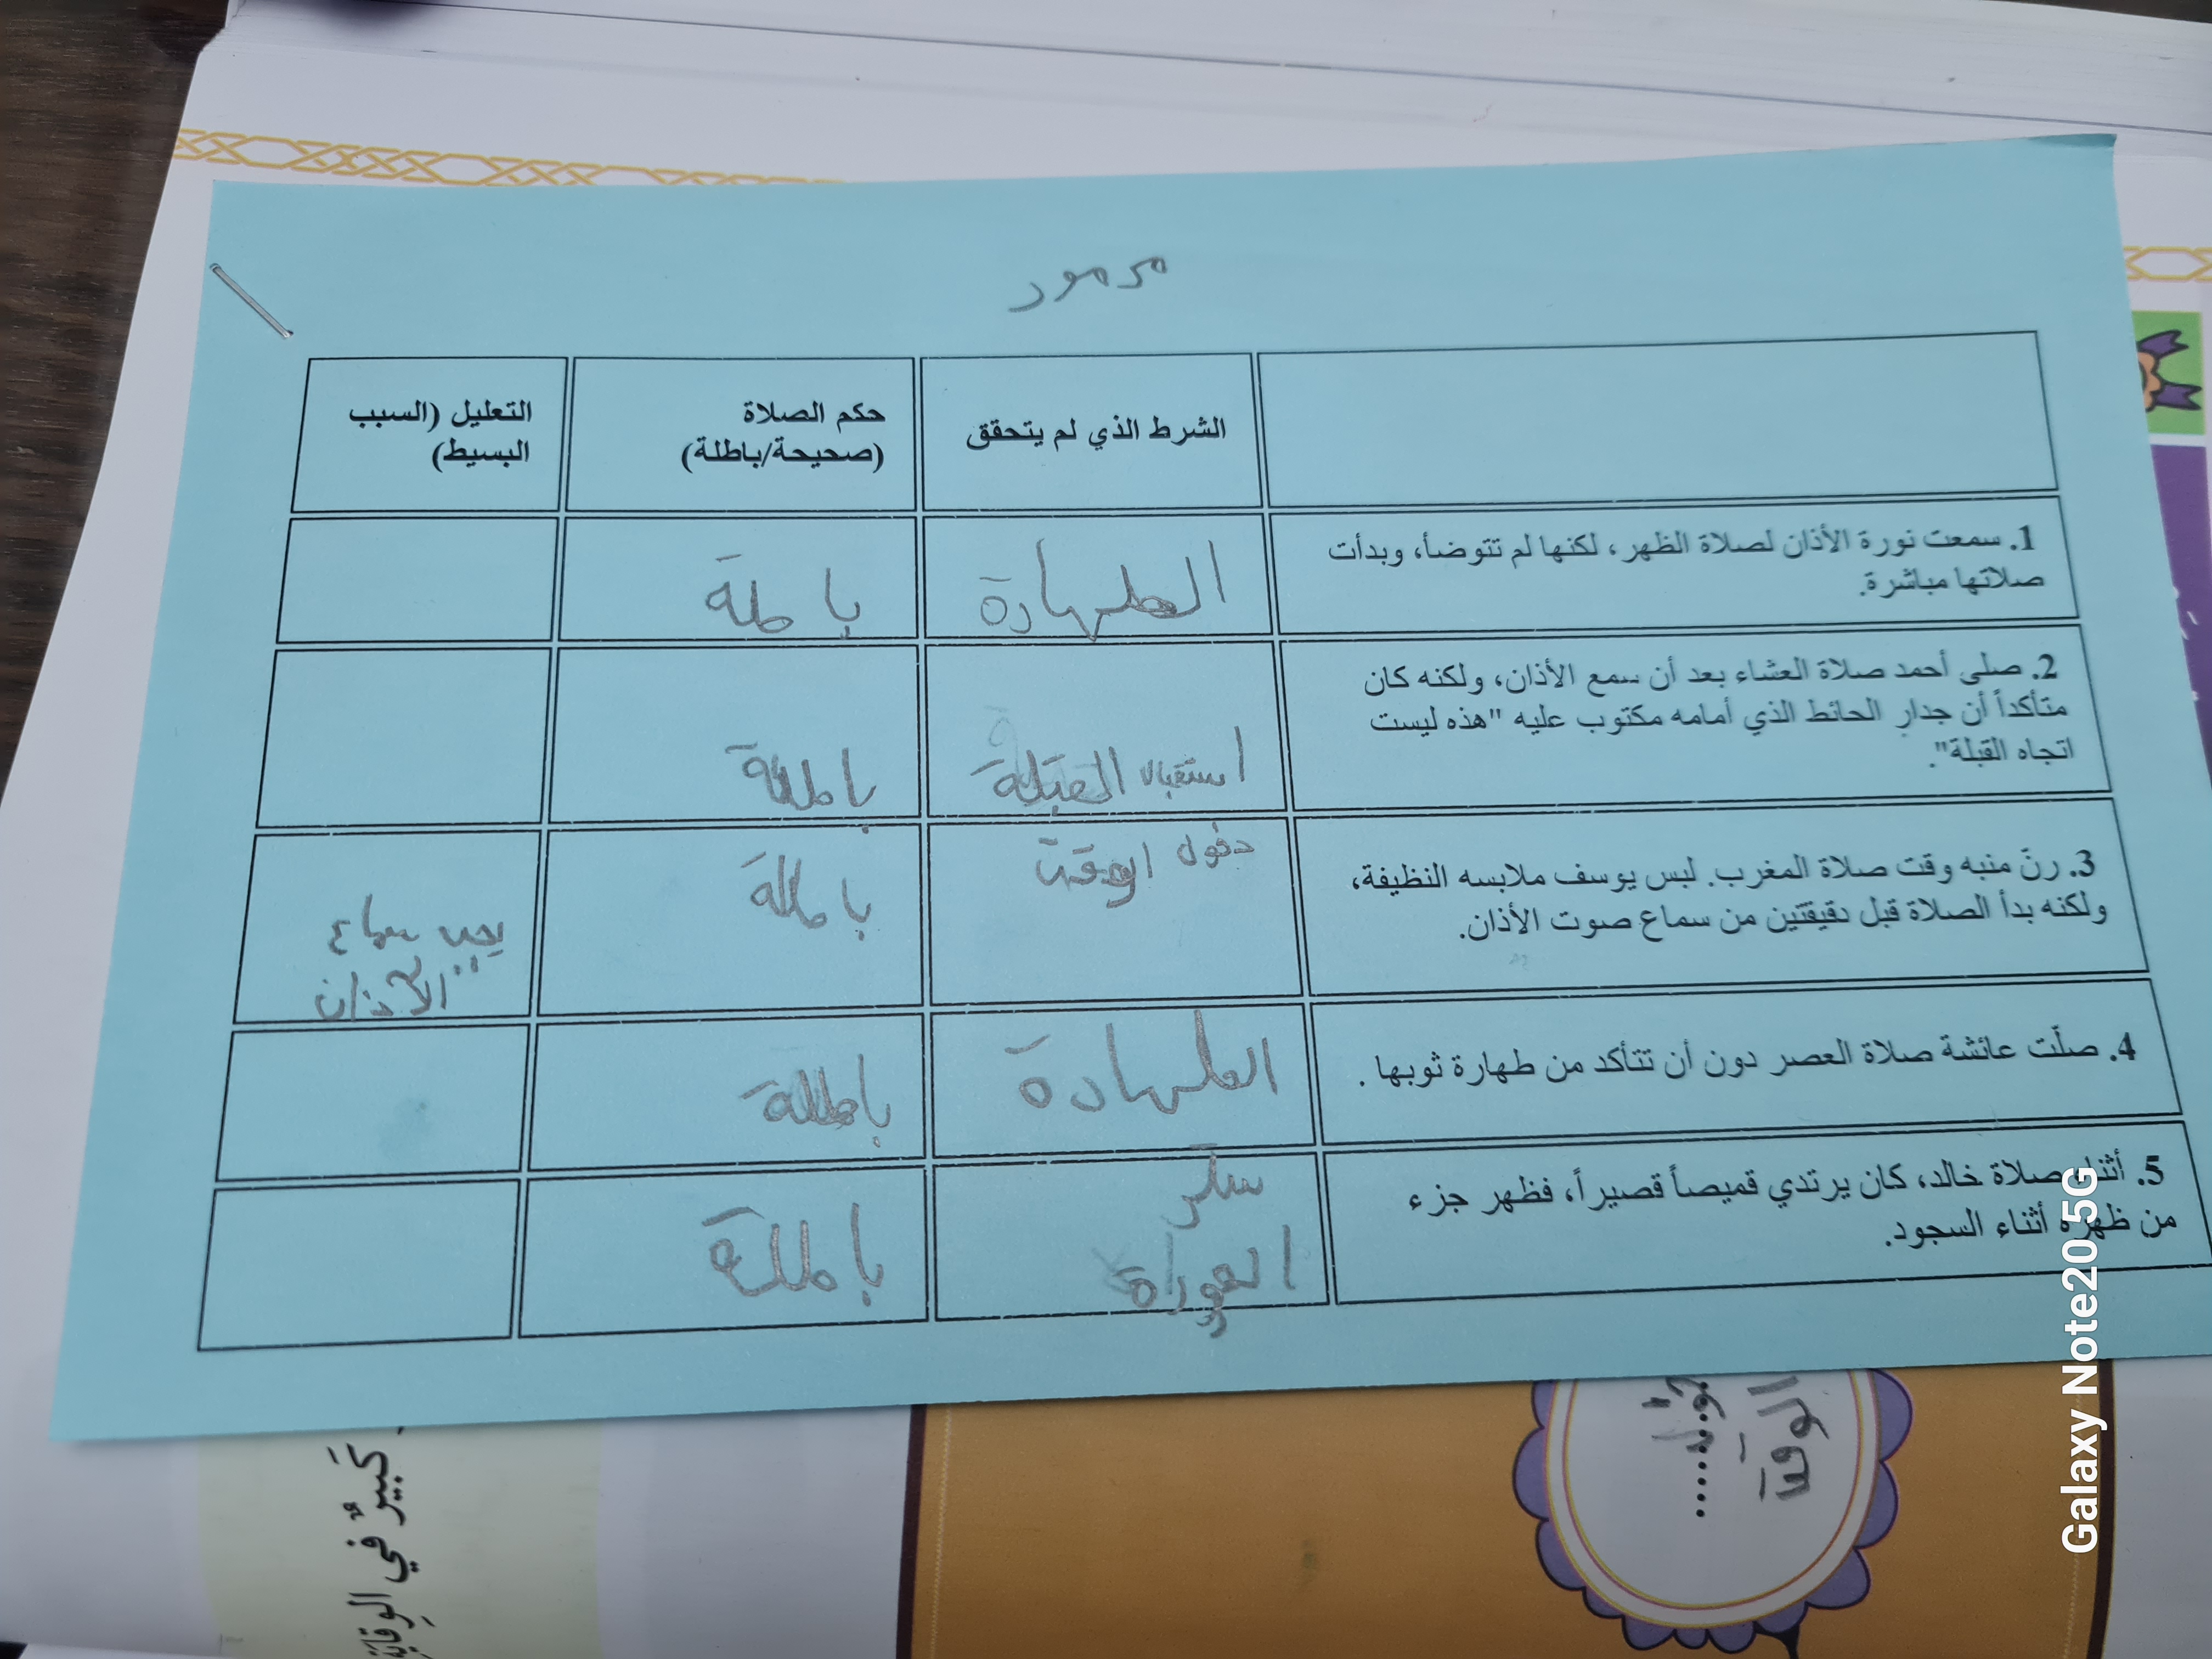 محمود
الشرط الذي لم يتحقق
حكم الصلاة
(صحيحة/باطلة)
التعليل (السبب
البسيط)
1. سمعت نورة الأذان لصلاة الظهر، لكنها لم تتوضأ، وبدأت
صلاتها مباشرة.
الطهارة
باطلة
2. صلى أحمد صلاة العشاء بعد أن سمع الأذان، ولكنه كان
متأكداً أن جدار الحائط الذي أمامه مكتوب عليه "هذه ليست
اتجاه القبلة".
استقبال القبلة
باطلة
3. رنّ منبه وقت صلاة المغرب. لبس يوسف ملابسه النظيفة،
ولكنه بدأ الصلاة قبل دقيقتين من سماع صوت الأذان.
دخول الوقت
باطلة
يجب سماع
الأذان
4. صلّت عائشة صلاة العصر دون أن تتأكد من طهارة ثوبها .
الطهارة
باطلة
5. أثناء صلاة خالد، كان يرتدي قميصاً قصيراً، فظهر جزء
من ظهره أثناء السجود.
ستر
العورة
باطلة
كَبيرٌ في الوِقايَةِ
الوقت
Galaxy Note20 5G